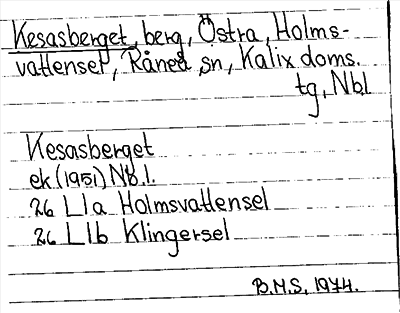 Kesasberget, berg, Östra, Holms-
vattensel, Råneå sn, Kalix doms.
tg, Nbl
Kesasberget
ek (1951) Nb.l.
26 L1a Holmsvattensel
26 L1b Klingersel
B.M.S, 1974.